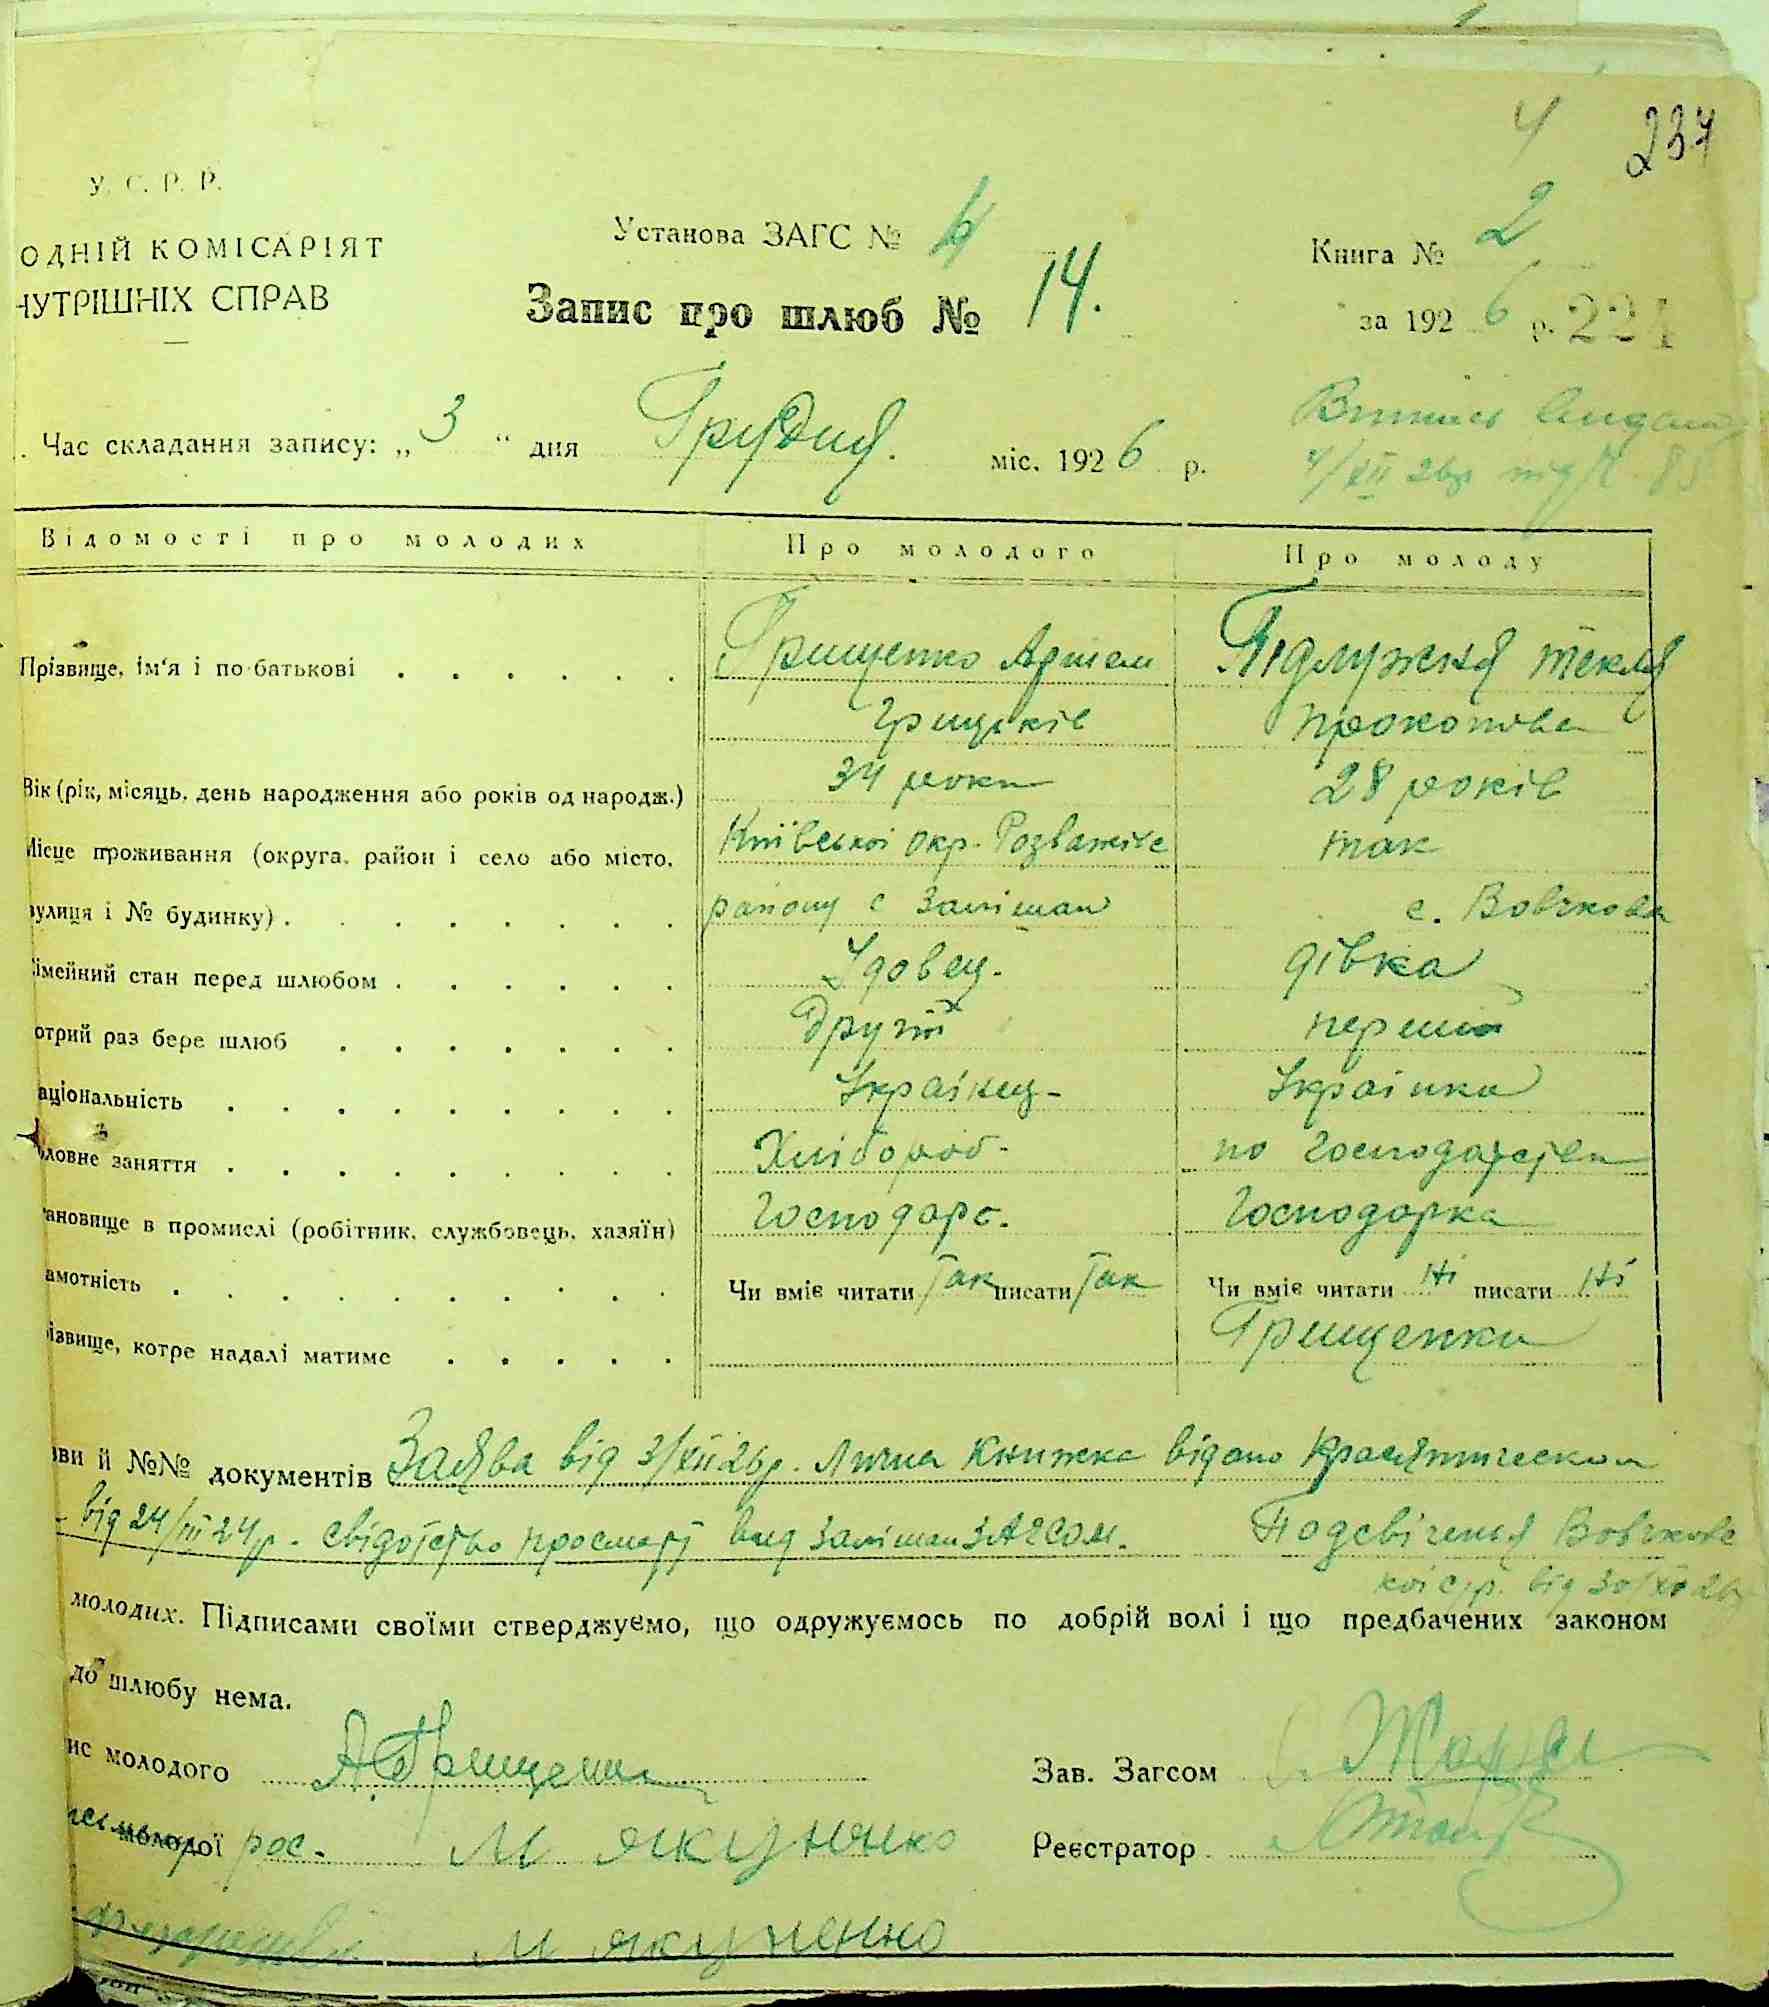 4 237
У. С. Р. Р.
ОДНІЙ КОМІСАРІЯТ
НУТРІШНІХ СПРАВ
Установа ЗАГС №
Книга № 2
Запис про шлюб № 14.
за 1926 р. 224
Час складання запису: „3“ дня Грудня. міс. 1926 р.
Випись видана
4/XII 26р під № 85
Відомості про молодих Про молодого Про молоду
Прізвище, ім'я і по-батькові Грищенко Артем Підлужная Текля
Грицьків Прокопова
Вік (рік, місяць, день народження або років од народж.) 34 роки 28 років
Місце проживання (округа, район і село або місто, Київської окр. Розважівс так
вулиця і № будинку) району с Замішан с. Вовчкова
імейний стан перед шлюбом Удовец- дівка
отрий раз бере шлюб Другий перший
аціональність Українец- Українка
ловне заняття Хлібороб- по господарству
ановище в промислі (робітник, службовець, хазяїн) Господарь. Господарка
амотність Чи вміє читати Так писати Так Чи вміє читати Ні писати Ні
ізвище, котре надалі матиме Грищенко
ви й №№ документів Заява від 3/XII 26р. Лична Книжка відано
від 24/III 24р. свідотство просмерт вид Замішан ЗАГСОМ. Подсвіченья Вовчковс
кої с/р. від 30/XI 26
молодих. Підписами своїми стверджуємо, що одружуємось по добрій волі і що предбачених законом
до шлюбу нема.
ис молодого А. Грищенко
Зав. Загсом
молодої рос. М Якуненко
Реєстратор
М Якуненко